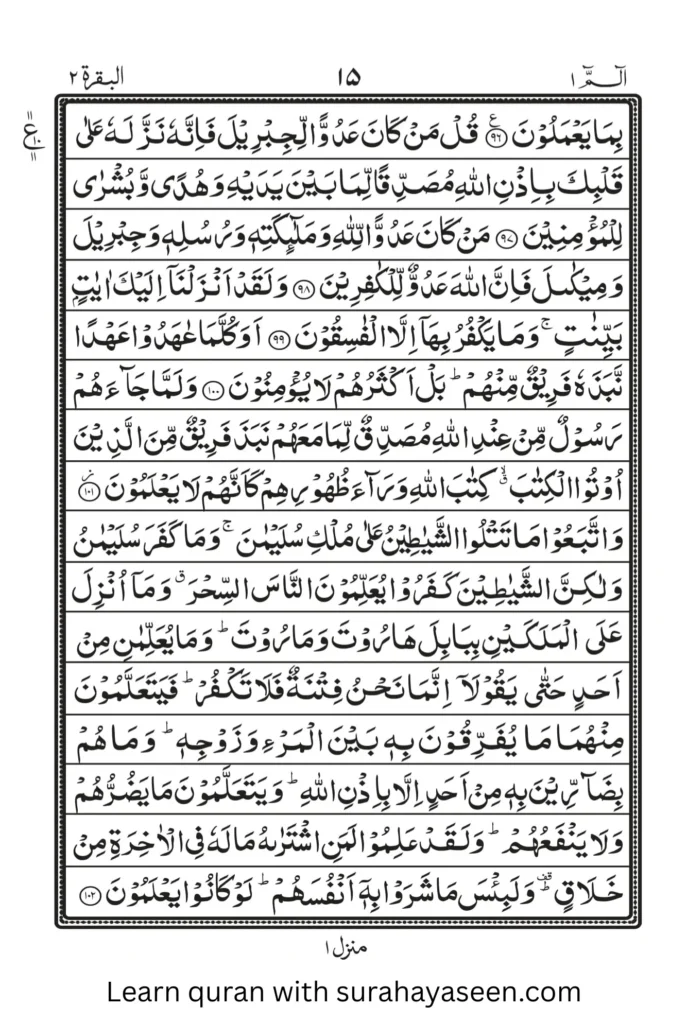 الٓـمّٓ ١ ١٥ البقرة ٢
بِمَا يَعْمَلُوْنَ ﴿۹۶﴾ ع قُلْ مَنْ كَانَ عَدُوًّا لِّجِبْرِيْلَ فَاِنَّهٗ نَزَّلَهٗ عَلٰى
قَلْبِكَ بِاِذْنِ اللّٰهِ مُصَدِّقًا لِّمَا بَيْنَ يَدَيْهِ وَهُدًى وَّبُشْرٰى
لِلْمُؤْمِنِيْنَ ﴿۹۷﴾ مَنْ كَانَ عَدُوًّا لِّلّٰهِ وَمَلٰٓئِكَتِهٖ وَرُسُلِهٖ وَجِبْرِيْلَ
وَمِيْكٰىلَ فَاِنَّ اللّٰهَ عَدُوٌّ لِّلْكٰفِرِيْنَ ﴿۹۸﴾ وَلَقَدْ اَنْزَلْنَاۤ اِلَيْكَ اٰيٰتٍۭ
بَيِّنٰتٍ ۚ وَمَا يَكْفُرُ بِهَاۤ اِلَّا الْفٰسِقُوْنَ ﴿۹۹﴾ اَوَكُلَّمَا عٰهَدُوْا عَهْدًا
نَّبَذَهٗ فَرِيْقٌ مِّنْهُمْ ؕ بَلْ اَكْثَرُهُمْ لَا يُؤْمِنُوْنَ ﴿۱۰۰﴾ وَلَمَّا جَآءَهُمْ
رَسُوْلٌ مِّنْ عِنْدِ اللّٰهِ مُصَدِّقٌ لِّمَا مَعَهُمْ نَبَذَ فَرِيْقٌ مِّنَ الَّذِيْنَ
اُوْتُوا الْكِتٰبَ ۙۗ كِتٰبَ اللّٰهِ وَرَآءَ ظُهُوْرِهِمْ كَاَنَّهُمْ لَا يَعْلَمُوْنَ ﴿۱۰۱﴾ ز
وَاتَّبَعُوْا مَا تَتْلُوا الشَّيٰطِيْنُ عَلٰى مُلْكِ سُلَيْمٰنَ ۚ وَمَا كَفَرَ سُلَيْمٰنُ
وَلٰكِنَّ الشَّيٰطِيْنَ كَفَرُوْا يُعَلِّمُوْنَ النَّاسَ السِّحْرَ ۗ وَمَاۤ اُنْزِلَ
عَلَى الْمَلَكَيْنِ بِبَابِلَ هَارُوْتَ وَمَارُوْتَ ؕ وَمَا يُعَلِّمٰنِ مِنْ
اَحَدٍ حَتّٰى يَقُوْلَاۤ اِنَّمَا نَحْنُ فِتْنَةٌ فَلَا تَكْفُرْ ؕ فَيَتَعَلَّمُوْنَ
مِنْهُمَا مَا يُفَرِّقُوْنَ بِهٖ بَيْنَ الْمَرْءِ وَزَوْجِهٖ ؕ وَمَا هُمْ
بِضَآرِّيْنَ بِهٖ مِنْ اَحَدٍ اِلَّا بِاِذْنِ اللّٰهِ ؕ وَيَتَعَلَّمُوْنَ مَا يَضُرُّهُمْ
وَلَا يَنْفَعُهُمْ ؕ وَلَقَدْ عَلِمُوْا لَمَنِ اشْتَرٰىهُ مَا لَهٗ فِى الْاٰخِرَةِ مِنْ
خَلَاقٍ ؕ قف وَلَبِئْسَ مَا شَرَوْا بِهٖۤ اَنْفُسَهُمْ ؕ لَوْ كَانُوْا يَعْلَمُوْنَ ﴿۱۰۲﴾
منزل ١
Learn quran with surahayaseen.com